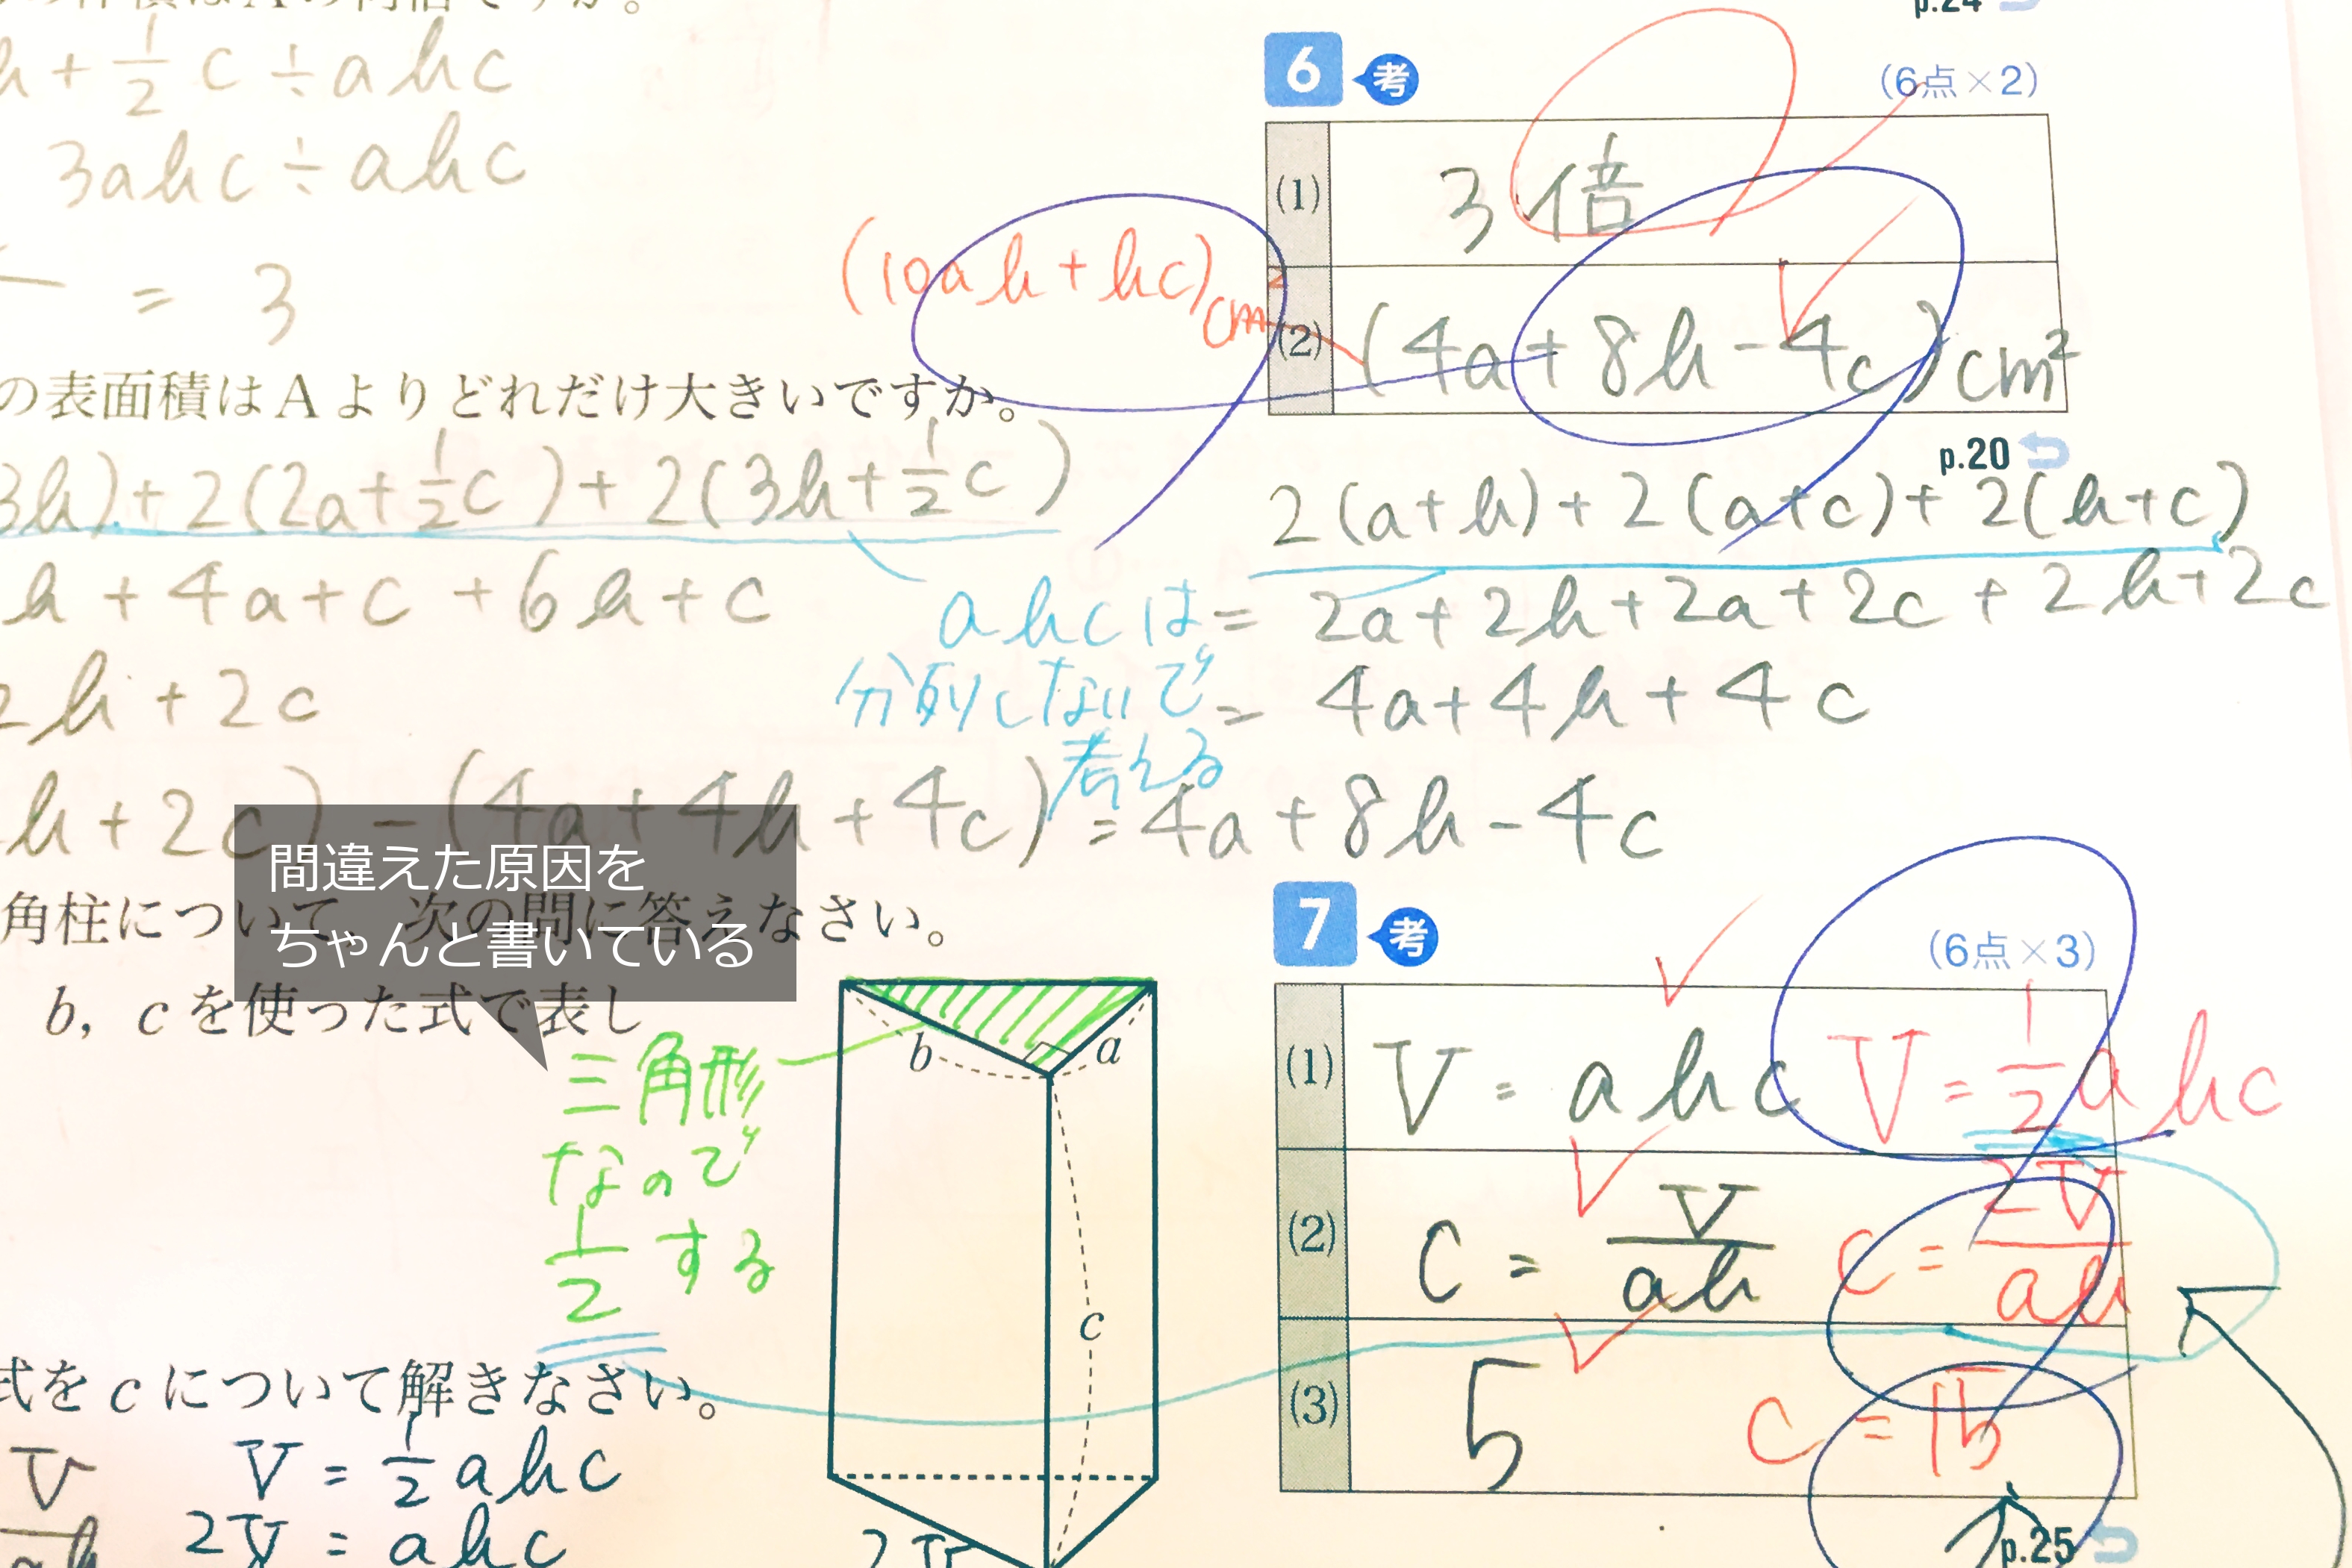 p.24
h + 1/2 c ÷ ahc
3ahc ÷ ahc
= 3
の表面積はAよりどれだけ大きいですか。
3h) + 2(2a + 1/2 c) + 2(3h + 1/2 c)
h + 4a + c + 6h + c
2h + 2c
h + 2c) - (4a + 4h + 4c) = 4a + 8h - 4c
6 考 (6点×2)
(1) 3倍
(10ah + hc)cm²
(2) (4a + 8h - 4c)cm²
p.20
2(a+h) + 2(a+c) + 2(h+c)
= 2a + 2h + 2a + 2c + 2h + 2c
= 4a + 4h + 4c
ahcは
分列しないで
考える
間違えた原因を
ちゃんと書いている
角柱について、次の問に答えなさい。
b, cを使った式で表し
三角形
なので
1/2 する
b
a
c
式をcについて解きなさい。
V
V = 1/2 ahc
2V = ahc
7 考 (6点×3)
(1) V = ahc V = 1/2 ahc
(2) c = V/ah c = 2V/ah
(3) 5 c = 15
p.25